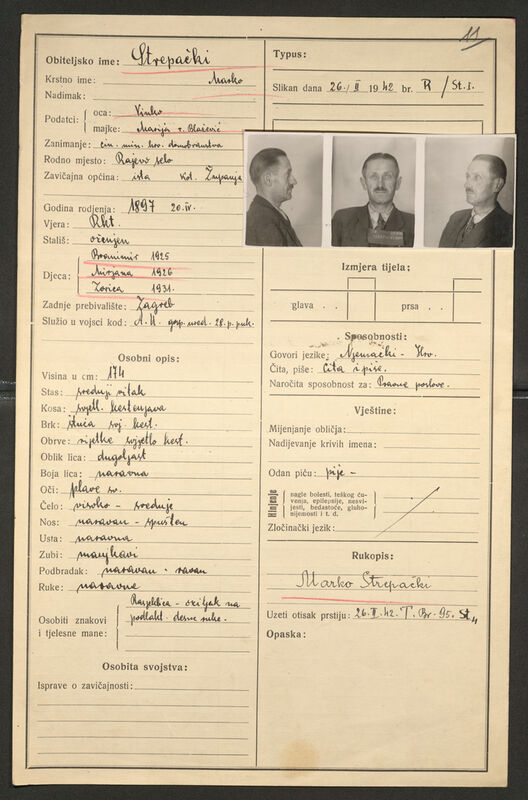 11
Obiteljsko ime: Strepački
Krstno ime: Marko
Nadimak:
Podatci
oca: Vinko
majke: Marija r. Blažević
Zanimanje: čin. min. hrv. domobranstva
Rodno mjesto: Rajevo selo
Zavičajna općina: ista kot. Županja
Godina rodjenja: 1897 20. IV.
Vjera: Rkt.
Stališ: oženjen
Djeca:
Branimir 1925
Mirjana 1926
Zorica 1931.
Zadnje prebivalište: Zagreb
Služio u vojsci kod: A. U. gosp. ured. 28. p. puk.
Osobni opis:
Visina u cm: 174
Stas: srednji vitak
Kosa: svjetl. kestenjava
Brk: štuca svj. kest.
Obrve: rijetke svjetlo kest.
Oblik lica: dugoljast
Boja lica: naravna
Oči: plave sv.
Čelo: visoko - srednje
Nos: naravan - spušten
Usta: naravna
Zubi: manjkavi
Podbradak: naravan - ravan
Ruke: naravne
Osobiti znakovi i tjelesne mane:
ožiljak na
podlakt. desne ruke.
Osobita svojstva:
Isprave o zavičajnosti:
Typus:
Slikan dana 26./II 1942 br. R / St. I.
Izmjera tijela:
glava . . prsa . .
Sposobnosti:
Govori jezike: Njemački - Hrv.
Čita, piše: Čita i piše.
Naročita sposobnost za: Pravne poslove.
Vještine:
Mijenjanje obličja:
Nadijevanje krivih imena:
Odan piću: pije -
Hinjenje
nagle bolesti, teškog ču-
venja, epilepsije, nesvi-
jesti, bedastoće, gluho-
nijemosti i t. d.
Zločinački jezik:
Rukopis:
Marko Strepački
Uzeti otisak prstiju: 26. II. 42. T. Br. 95. St.
Opaska: